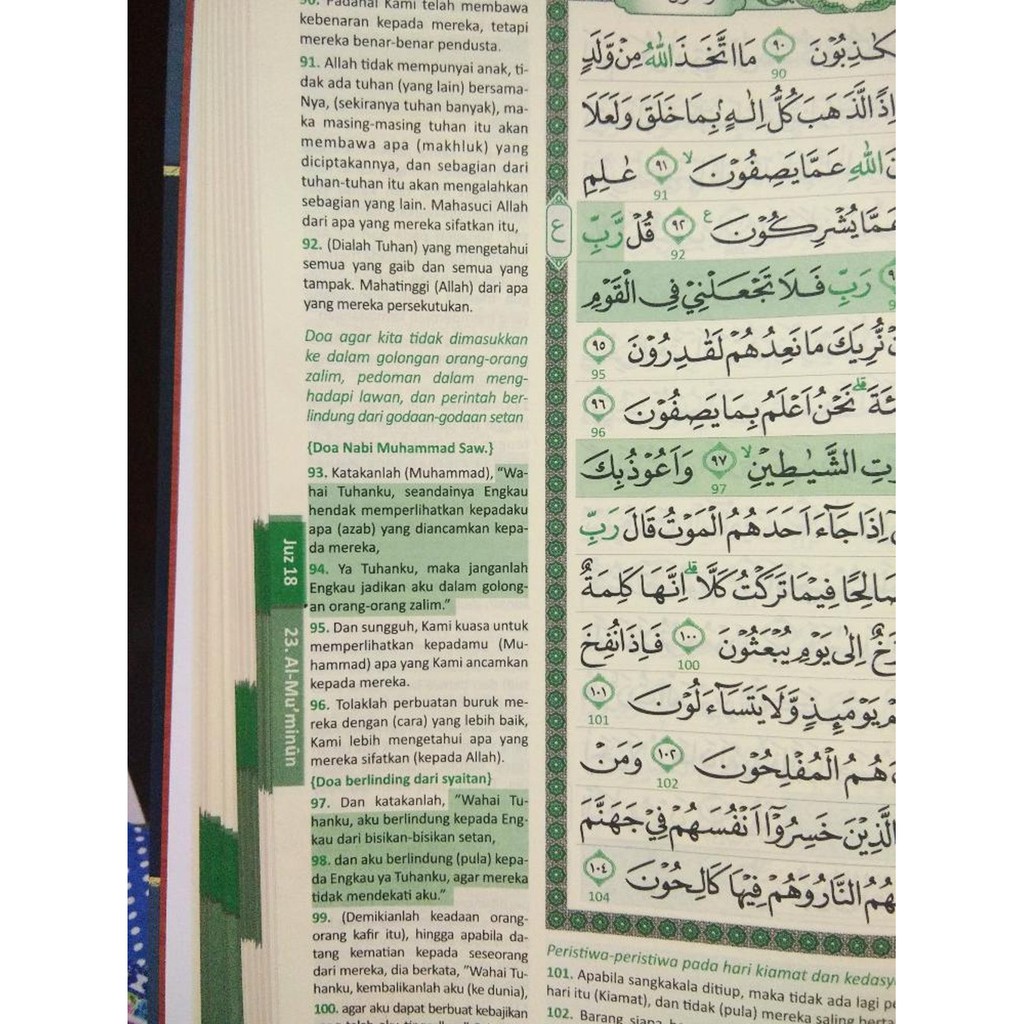 90. Padahal Kami telah membawa
kebenaran kepada mereka, tetapi
mereka benar-benar pendusta.
91. Allah tidak mempunyai anak, ti-
dak ada tuhan (yang lain) bersama-
Nya, (sekiranya tuhan banyak), ma-
ka masing-masing tuhan itu akan
membawa apa (makhluk) yang
diciptakannya, dan sebagian dari
tuhan-tuhan itu akan mengalahkan
sebagian yang lain. Mahasuci Allah
dari apa yang mereka sifatkan itu,
92. (Dialah Tuhan) yang mengetahui
semua yang gaib dan semua yang
tampak. Mahatinggi (Allah) dari apa
yang mereka persekutukan.
Doa agar kita tidak dimasukkan
ke dalam golongan orang-orang
zalim, pedoman dalam meng-
hadapi lawan, dan perintah ber-
lindung dari godaan-godaan setan
{Doa Nabi Muhammad Saw.}
93. Katakanlah (Muhammad), "Wa-
hai Tuhanku, seandainya Engkau
hendak memperlihatkan kepadaku
apa (azab) yang diancamkan kepa-
da mereka,
94. Ya Tuhanku, maka janganlah
Engkau jadikan aku dalam golong-
an orang-orang zalim."
95. Dan sungguh, Kami kuasa untuk
memperlihatkan kepadamu (Mu-
hammad) apa yang Kami ancamkan
kepada mereka.
96. Tolaklah perbuatan buruk me-
reka dengan (cara) yang lebih baik,
Kami lebih mengetahui apa yang
mereka sifatkan (kepada Allah).
{Doa berlinding dari syaitan}
97. Dan katakanlah, "Wahai Tu-
hanku, aku berlindung kepada Eng-
kau dari bisikan-bisikan setan,
98. dan aku berlindung (pula) kepa-
da Engkau ya Tuhanku, agar mereka
tidak mendekati aku."
99. (Demikianlah keadaan orang-
orang kafir itu), hingga apabila da-
tang kematian kepada seseorang
dari mereka, dia berkata, "Wahai Tu-
hanku, kembalikanlah aku (ke dunia),
100. agar aku dapat berbuat kebajikan
Juz 18
23. Al-Mu'minûn
ع
كٰذِبُوْنَ ٩٠ 90 مَا اتَّخَذَ اللّٰهُ مِنْ وَّلَدٍ
اِذًا لَّذَهَبَ كُلُّ اِلٰهٍۢ بِمَا خَلَقَ وَلَعَلَا
اللّٰهِ عَمَّا يَصِفُوْنَۙ ٩١ 91 عٰلِمِ
عَمَّا يُشْرِكُوْنَ ࣖ ٩٢ 92 قُلْ رَّبِّ
رَبِّ فَلَا تَجْعَلْنِيْ فِى الْقَوْمِ
نُّرِيَكَ مَا نَعِدُهُمْ لَقٰدِرُوْنَ ٩٥ 95
نَحْنُ اَعْلَمُ بِمَا يَصِفُوْنَ ٩٦ 96
الشَّيٰطِيْنِۙ ٩٧ 97 وَاَعُوْذُ بِكَ
اِذَا جَاۤءَ اَحَدَهُمُ الْمَوْتُ قَالَ رَبِّ
صَالِحًا فِيْمَا تَرَكْتُ كَلَّاۗ اِنَّهَا كَلِمَةٌ
اِلٰى يَوْمِ يُبْعَثُوْنَ ١٠٠ 100 فَاِذَا نُفِخَ
يَوْمَىِٕذٍ وَّلَا يَتَسَاۤءَلُوْنَ ١٠١ 101
هُمُ الْمُفْلِحُوْنَ ١٠٢ 102 وَمَنْ
الَّذِيْنَ خَسِرُوْٓا اَنْفُسَهُمْ فِيْ جَهَنَّمَ
النَّارُ وَهُمْ فِيْهَا كَالِحُوْنَ ١٠٤ 104
Peristiwa-peristiwa pada hari kiamat dan
101. Apabila sangkakala ditiup, maka tidak ada lagi
hari itu (Kiamat), dan tidak (pula) mereka saling
102. Barang siapa